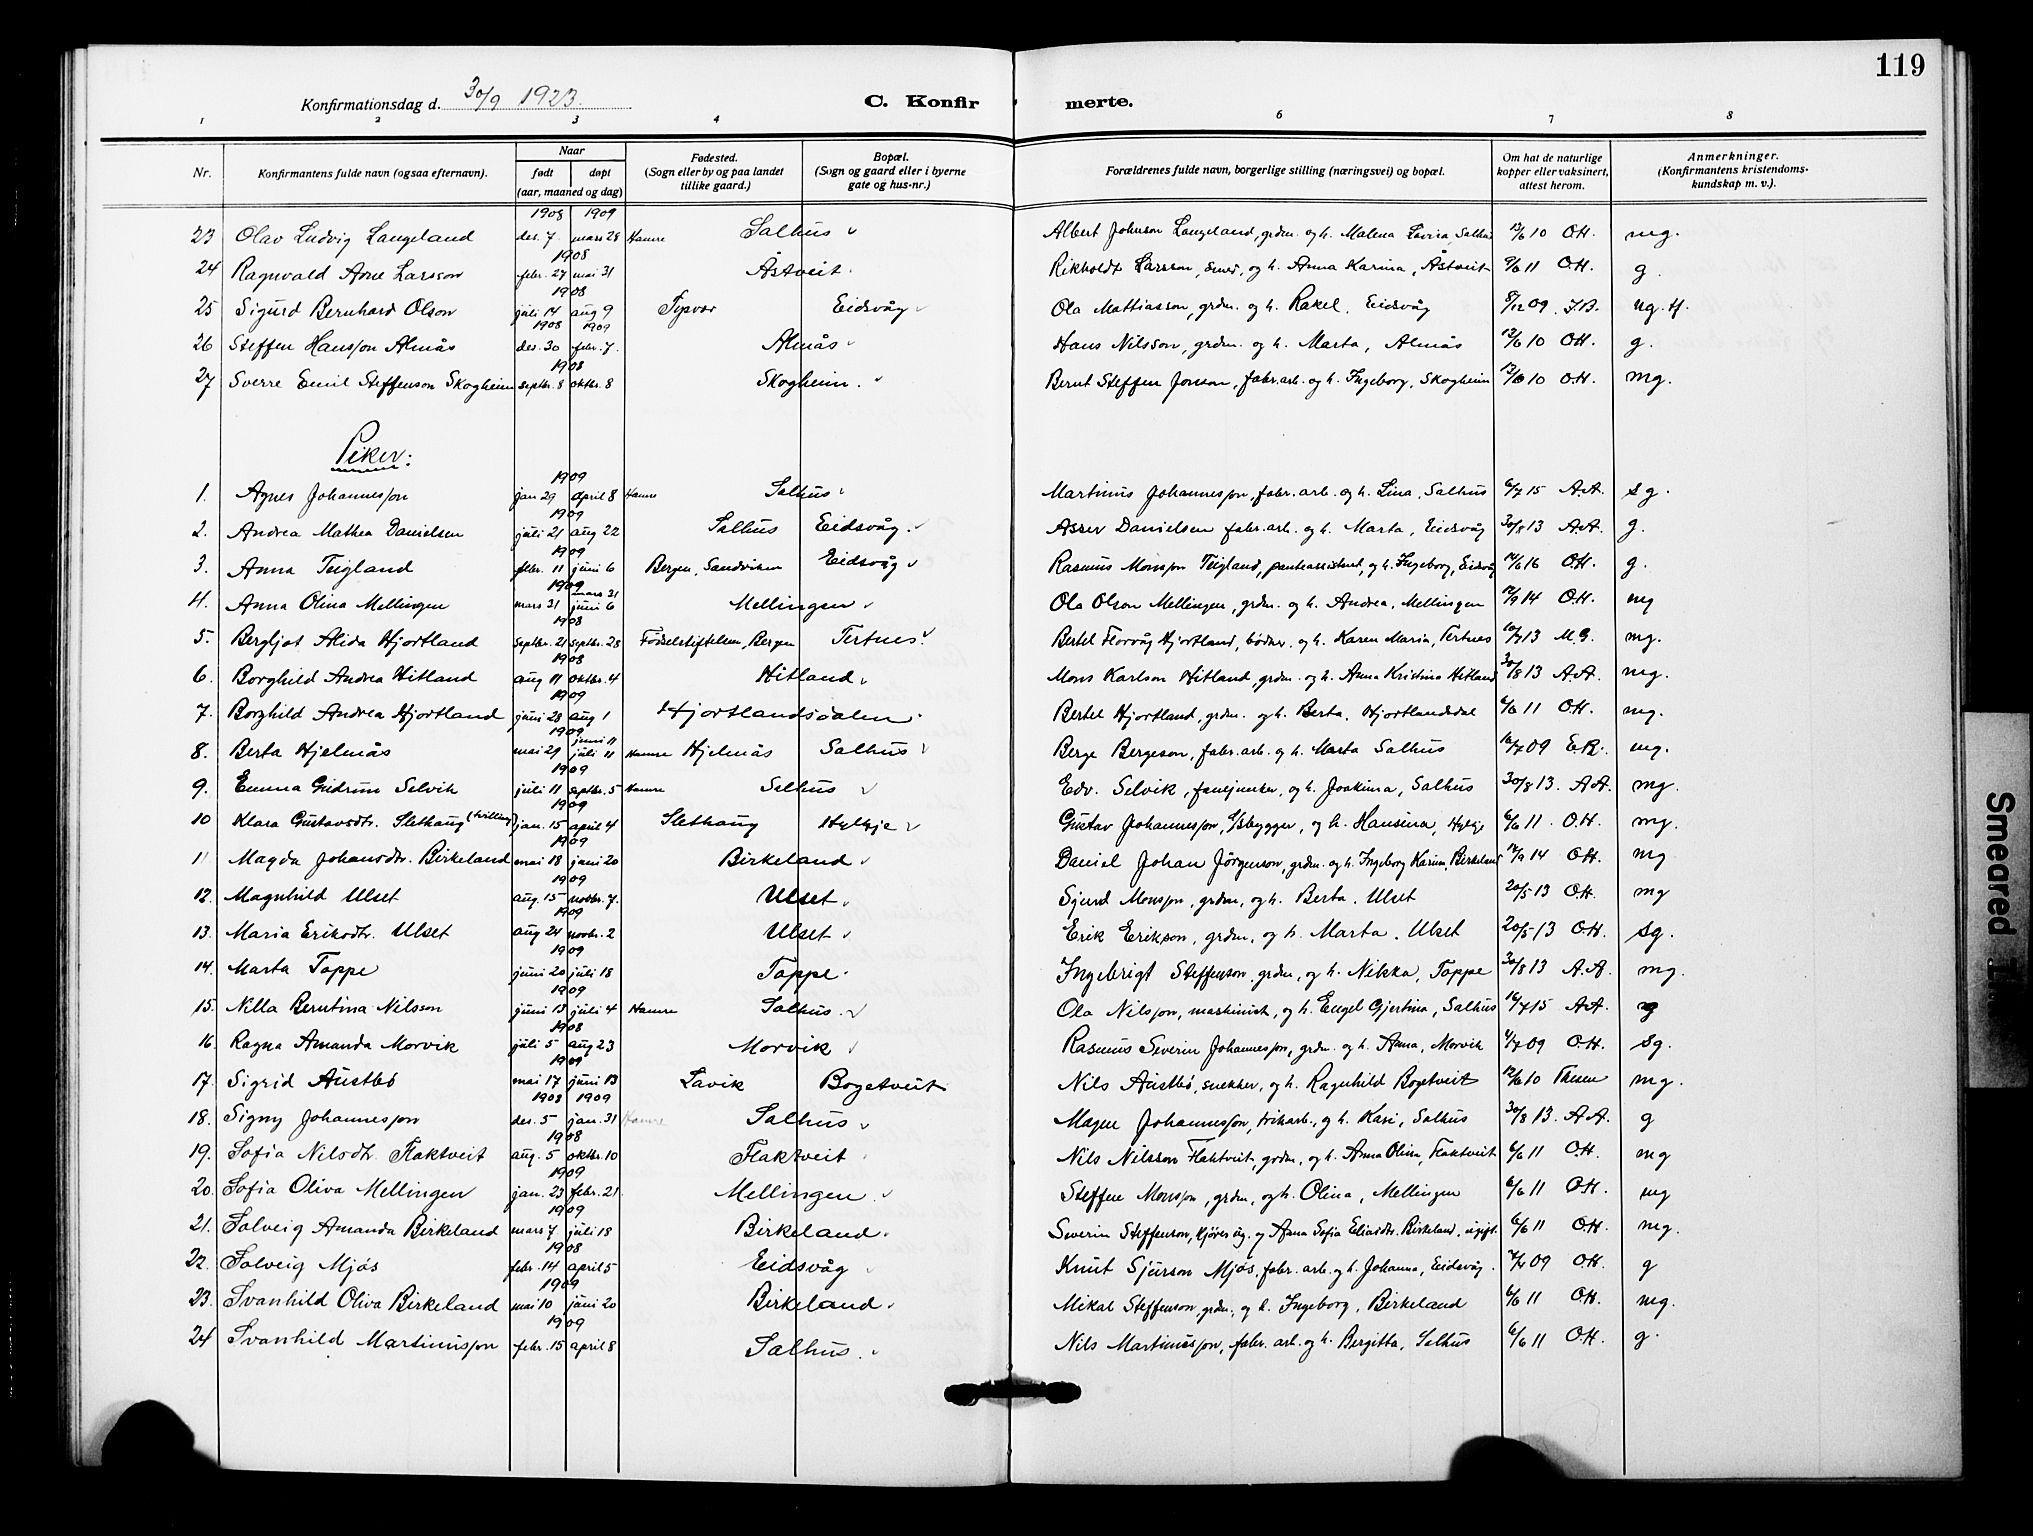 119
Konfirmationsdag d. 30/9 1923. C. Konfirmerte.
1 2 3 4 6 7 8
Nr. Konfirmantens fulde navn (ogsaa efternavn). Naar født døpt (aar, maaned og dag) Fødested. (Sogn eller by og paa landet tillike gaard.) Bopæl. (Sogn og gaard eller i byerne gate og hus-nr.) Forældrenes fulde navn, borgerlige stilling (næringsvei) og bopæl. Om hat de naturlige kopper eller vaksinert, attest herom. Anmerkninger. (Konfirmantens kristendoms-kundskap m. v.).
1908 1909
23 Olav Ludvig Langeland des. 7 mars 28 Hamre Salhus Albert Johnson Langeland, grdm. og h. Malena Lavina, Salhus 10 O.H. mg.
1908
24 Ragnvald Arne Larsson febr. 27 mai 31 Åstveit Rikholdt Larsson, smed, og h. Anna Karina, Åstveit 11 O.H. g.
1908
25 Sigurd Bernhard Olson juli 14 aug 9 Eidsvåg Ola Mattiasson, grdm. og h. Rakel, Eidsvåg 8/12 09 J.B.
1908 1909
26 Steffen Hansson Almås des. 30 febr. 7. Almås Hans Nilsson, grdm. og h. Marta, Almås 10 O.H. g.
1908
27 Sverre Emil Steffenson Skogheim septbr. 8 oktbr. 8 Skogheim. Bernt Steffen Jonson, fabr. arb. og h. Ingeborg, Skogheim 10 O.H. mg.
Piker:
1909
1. Agnes Johannesson jan 29 april 8 Hamre Salhus Martinus Johannesson, fabr. arb. og h. Lina, Salhus 6/7 15 A.A. sg.
1909
2. Andrea Mathea Danielsen juli 21 aug 22 Salhus Eidsvåg. Asser Danielsen fabr. arb. og h. Marta, Eidsvåg 30/8 13 A.A. g.
1909
3. Anna Teigland febr. 11 juni 6 Bergen, Sandviken Eidsvåg Rasmus Monsson Teigland, panteassistent, og h. Ingeborg, Eidsvåg 16 O.H. g.
1909 mars 31
4. Anna Olina Mellingen mars 31 juni 6 Mellingen Ola Olson Mellingen, grdm. og h. Andrea, Mellingen 14 O.H. mg
1908
5. Bergljot Alida Hjortland septbr. 21 septbr. 28 Fødselsstiftelsen, Bergen Tertnes. Bertel Florvåg Hjortland, bødker, og h. Karen Maria, Tertnes 13 M.G. mg.
1908
6. Borghild Andrea Hitland aug 11 oktbr. 4 Hitland Mons Karlson Hitland, grdm. og h. Anna Kristina Hitland 30/8 13 A.A. mg.
1909
7. Borghild Andrea Hjortland juni 28 aug 1 Hjortlandsdalen Bertel Hjortland, grdm. og h. Berta, Hjortlandsdal 6/6 11 O.H. mg.
1909 juni 11
8. Berta Hjelmås mai 29 juli 11 Hamre Hjelmås Salhus Berge Bergeson, fabr. arb. og h. Marta Salhus 09 E.R. mg.
1909
9. Emma Gudrun Selvik juli 11 septbr. 5 Hamre Salhus Edv. Selvik, fanejunker, og h. Joakima, Salhus 30/8 13. A.A. mg.
1909
10 Klara Gustavsdtr. Slethaug (tvilling) jan. 15 april 4 Slethaug Hylkje Gustav Johannesson, og h. Hansina, Hylkje 6/6 11. O.H. mg.
1909
11 Magda Johansdtr. Birkeland mai 18 juni 20 Birkeland Daniel Johan Jörgenson, grdm. og h. Ingeborg Karina, Birkeland 14 O.H. mg
1909
12. Magnhild Ulset aug. 15 novbr. 7. Ulset Sjurd Monsson, grdm. og h. Berta. Ulset 20/5 13 O.H. mg
1909
13. Maria Eriksdtr. Ulset aug 24 novbr. 2 Ulset Erik Erikson, grdm. og h. Marta. Ulset 20/5 13 O.H. sg.
1909
14. Marta Toppe juni 20 juli 18 Toppe Ingebrigt Steffenson, grdm. og h. Nikka, Toppe 30/8 13 A.A. mg.
1909
15. Nilla Berntina Nilsson juni 13 juli 4 Hamre Salhus Ola Nilsson, maskinist, og h. Engel Gjertina, Salhus 15 A.A.
1908
16. Ragna Amanda Morvik juli 5 aug 23 Morvik Rasmus Severin Johannesson, grdm. og h. Anna, Morvik 09 O.H. sg.
1909
17. Sigrid Austbö mai 17 juni 13 Lavik Bogetveit Nils Austbö, snekker, og h. Ragnhild Bogetveit 10 mg.
1908 1909
18. Signy Johannesson des. 5 jan. 31 Hamre Salhus Magne Johannesson, og h. Kari, Salhus 30/8 13. A.A. g
1908
19. Sofia Nilsdtr. Flaktveit aug. 5 oktbr. 10 Flaktveit Nils Nilsson Flaktveit, grdm., og h. Anna Olina, Flaktveit 6/6 11 O.H. mg
1909
20. Sofia Oliva Mellingen jan. 23 febr. 21. Mellingen Steffen Monsson, grdm. og h. Olina, Mellingen 6/6 11 O.H. mg
1909
21. Solveig Amanda Birkeland mars 7 juli 18 Birkeland Severin Steffenson, og Anna Sofia Eliasdtr. Birkeland, ugift. 6/6 11 O.H. mg.
1908
22. Solveig Mjös febr. 14 april 5 Eidsvåg Knut Sjurson Mjös, fabr. arb. og h. Johanna, Eidsvåg. 09 O.H. g
1909
23. Svanhild Oliva Birkeland mai 10 juni 20 Birkeland Mikal Steffenson, grdm., og h. Ingeborg, Birkeland 6/6 11 O.H. mg.
1909
24 Svanhild Martinusson febr. 15 april 8 Salhus Nils Martinusson, fabr. arb. og h. Bergitta, Salhus 6/6 11 O.H. g.
Smeared